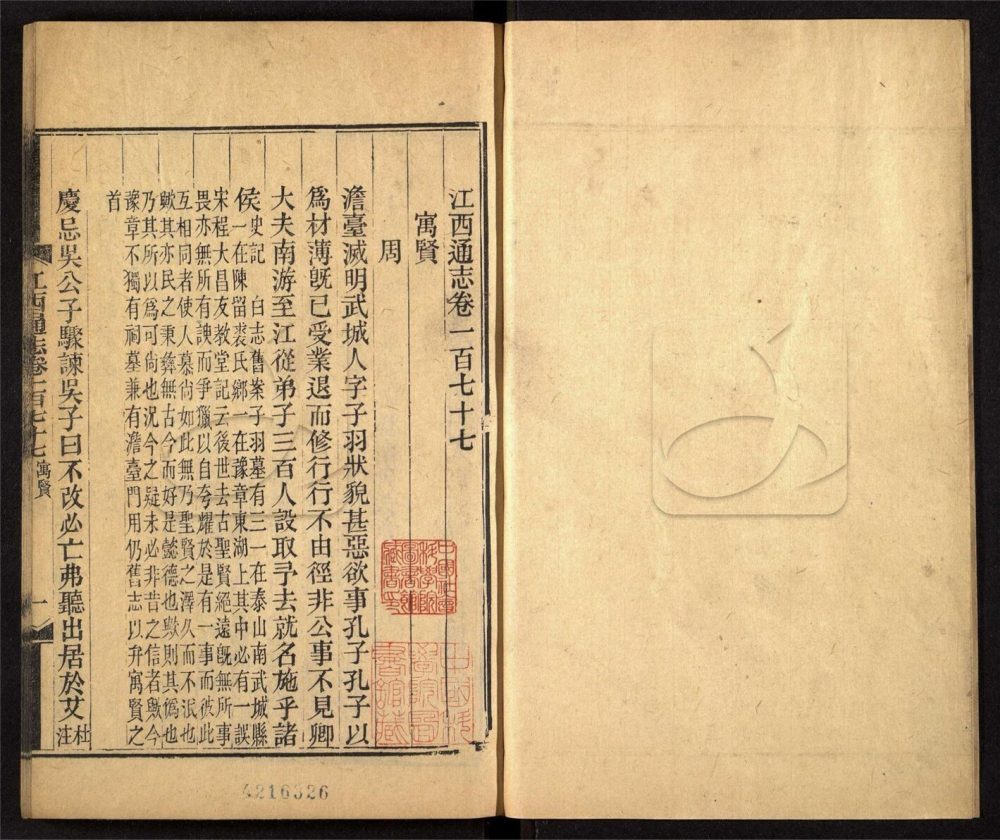 江西通志卷一百七十七
寓賢
周
澹臺滅明武城人字子羽狀貌甚惡欲事孔子孔子以
爲材薄旣已受業退而修行行不由徑非公事不見卿
大夫南游至江從弟子三百人設取予去就名施乎諸
侯
史記　白志舊案子羽墓有三一在泰山南武城縣
一在陳留裘氏鄉一在豫章東湖上其中必有一誤
宋程大昌友教堂記云後世去古聖賢絕遠旣無所事
畏亦無所有諛而爭獵以自夸耀於是有一事而彼此
互相同者使人慕尙如此無乃聖賢之澤久而不泯也
歟其亦民之秉彝無古今而好是懿德也歟則其僞也
乃其所以爲可尙也況今之疑未必非昔之信者歟今
豫章不獨有祠墓兼有澹臺門用仍舊志以弁寓賢之
首
慶忌吳公子驟諫吳子曰不改必亡弗聽出居於艾
杜
注
江西通志卷一百七十七　寓賢
一
中國社會
科學院
圖書館
藏書印
4216326